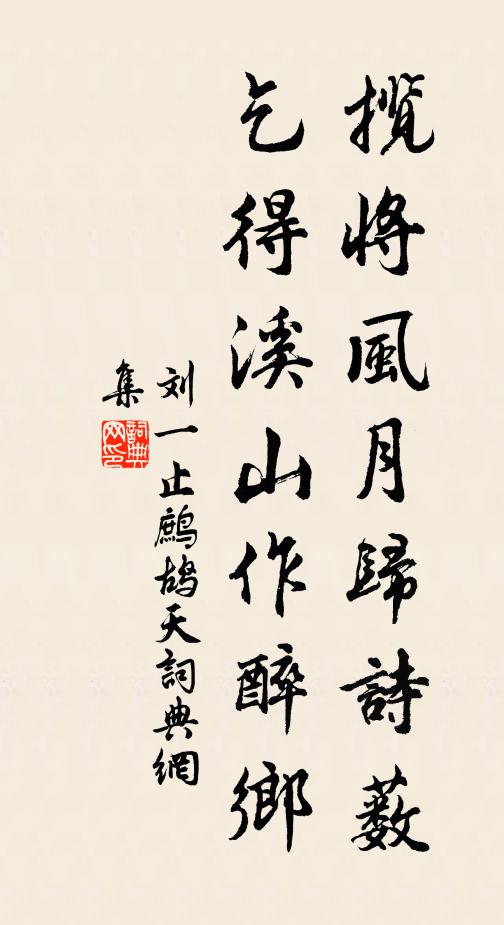 攬將風月歸詩藪
乞得溪山作醉鄉
刘一止鷓鴣天詞典網
集
詞典
网印